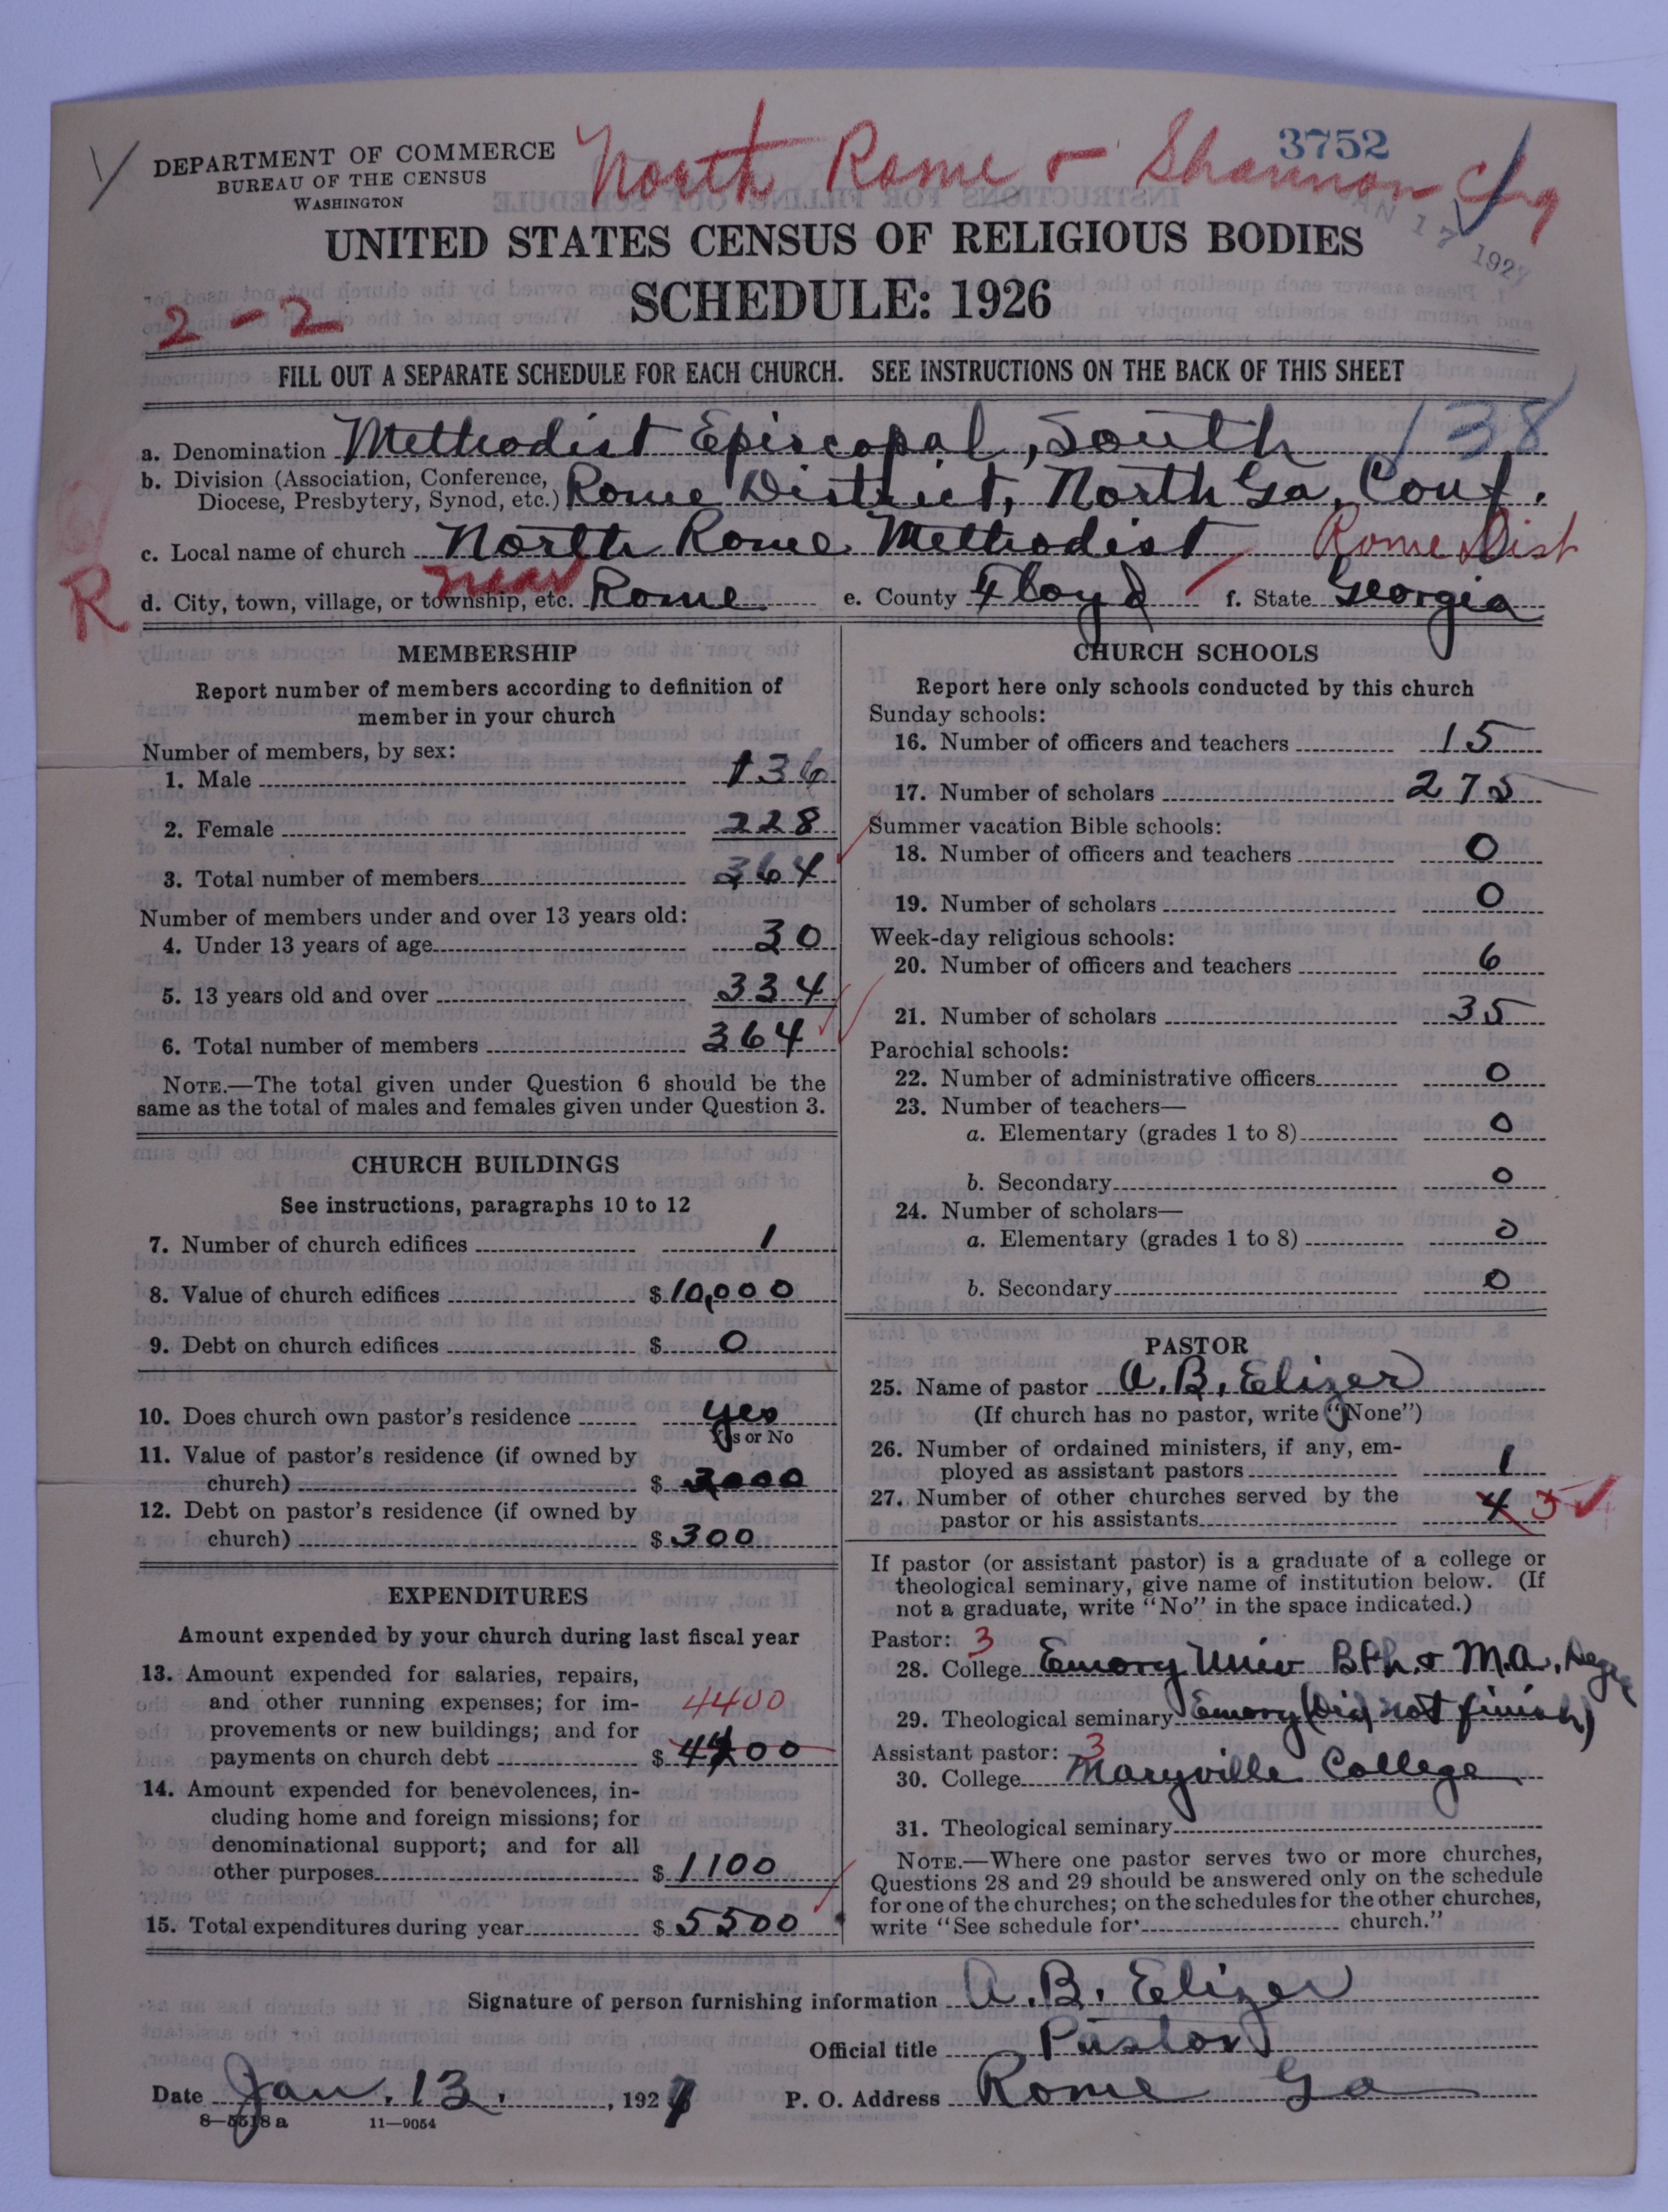 North Rome & Shannon Chg
3752
DEPARTMENT OF COMMERCE
BUREAU OF THE CENSUS
WASHINGTON
JAN 17 1927
UNITED STATES CENSUS OF RELIGIOUS BODIES
SCHEDULE: 1926
2-2
FILL OUT A SEPARATE SCHEDULE FOR EACH CHURCH. SEE INSTRUCTIONS ON THE BACK OF THIS SHEET
a. Denomination Methodist Episcopal, South 138
b. Division (Association, Conference,
Diocese, Presbytery, Synod, etc.) Rome District, North Ga. Conf.
c. Local name of church North Rome Methodist Rome Dist
R
d. City, town, village, or township, etc. near Rome e. County Floyd f. State Georgia
MEMBERSHIP
Report number of members according to definition of
member in your church
Number of members, by sex:
1. Male 136
2. Female 228
3. Total number of members 364
Number of members under and over 13 years old:
4. Under 13 years of age 30
5. 13 years old and over 334
6. Total number of members 364
NOTE.—The total given under Question 6 should be the
same as the total of males and females given under Question 3.
CHURCH BUILDINGS
See instructions, paragraphs 10 to 12
7. Number of church edifices 1
8. Value of church edifices $10,000
9. Debt on church edifices $ 0
10. Does church own pastor's residence yes
Yes or No
11. Value of pastor's residence (if owned by
church) $ 3000
12. Debt on pastor's residence (if owned by
church) $300
EXPENDITURES
Amount expended by your church during last fiscal year
13. Amount expended for salaries, repairs,
and other running expenses; for im- 4400
provements or new buildings; and for
payments on church debt $ 4400
14. Amount expended for benevolences, in-
cluding home and foreign missions; for
denominational support; and for all
other purposes $ 1100
15. Total expenditures during year $ 5500
CHURCH SCHOOLS
Report here only schools conducted by this church
Sunday schools:
16. Number of officers and teachers 15
17. Number of scholars 275
Summer vacation Bible schools:
18. Number of officers and teachers 0
19. Number of scholars 0
Week-day religious schools:
20. Number of officers and teachers 6
21. Number of scholars 35
Parochial schools:
22. Number of administrative officers 0
23. Number of teachers—
a. Elementary (grades 1 to 8) 0
b. Secondary 0
24. Number of scholars—
a. Elementary (grades 1 to 8) 0
b. Secondary 0
PASTOR
25. Name of pastor A. B. Elizer
(If church has no pastor, write "None")
26. Number of ordained ministers, if any, em-
ployed as assistant pastors 1
27. Number of other churches served by the
pastor or his assistants 4 3
If pastor (or assistant pastor) is a graduate of a college or
theological seminary, give name of institution below. (If
not a graduate, write "No" in the space indicated.)
Pastor: 3
28. College Emory Univ B.Ph. & M.A. Degs
29. Theological seminary Emory (Did not finish)
Assistant pastor: 3
30. College Maryville College
31. Theological seminary
NOTE.—Where one pastor serves two or more churches,
Questions 28 and 29 should be answered only on the schedule
for one of the churches; on the schedules for the other churches,
write "See schedule for church."
Signature of person furnishing information A. B. Elizer
Official title Pastor
Date Jan. 13, 1927 P. O. Address Rome Ga
8—5518 a 11—9054